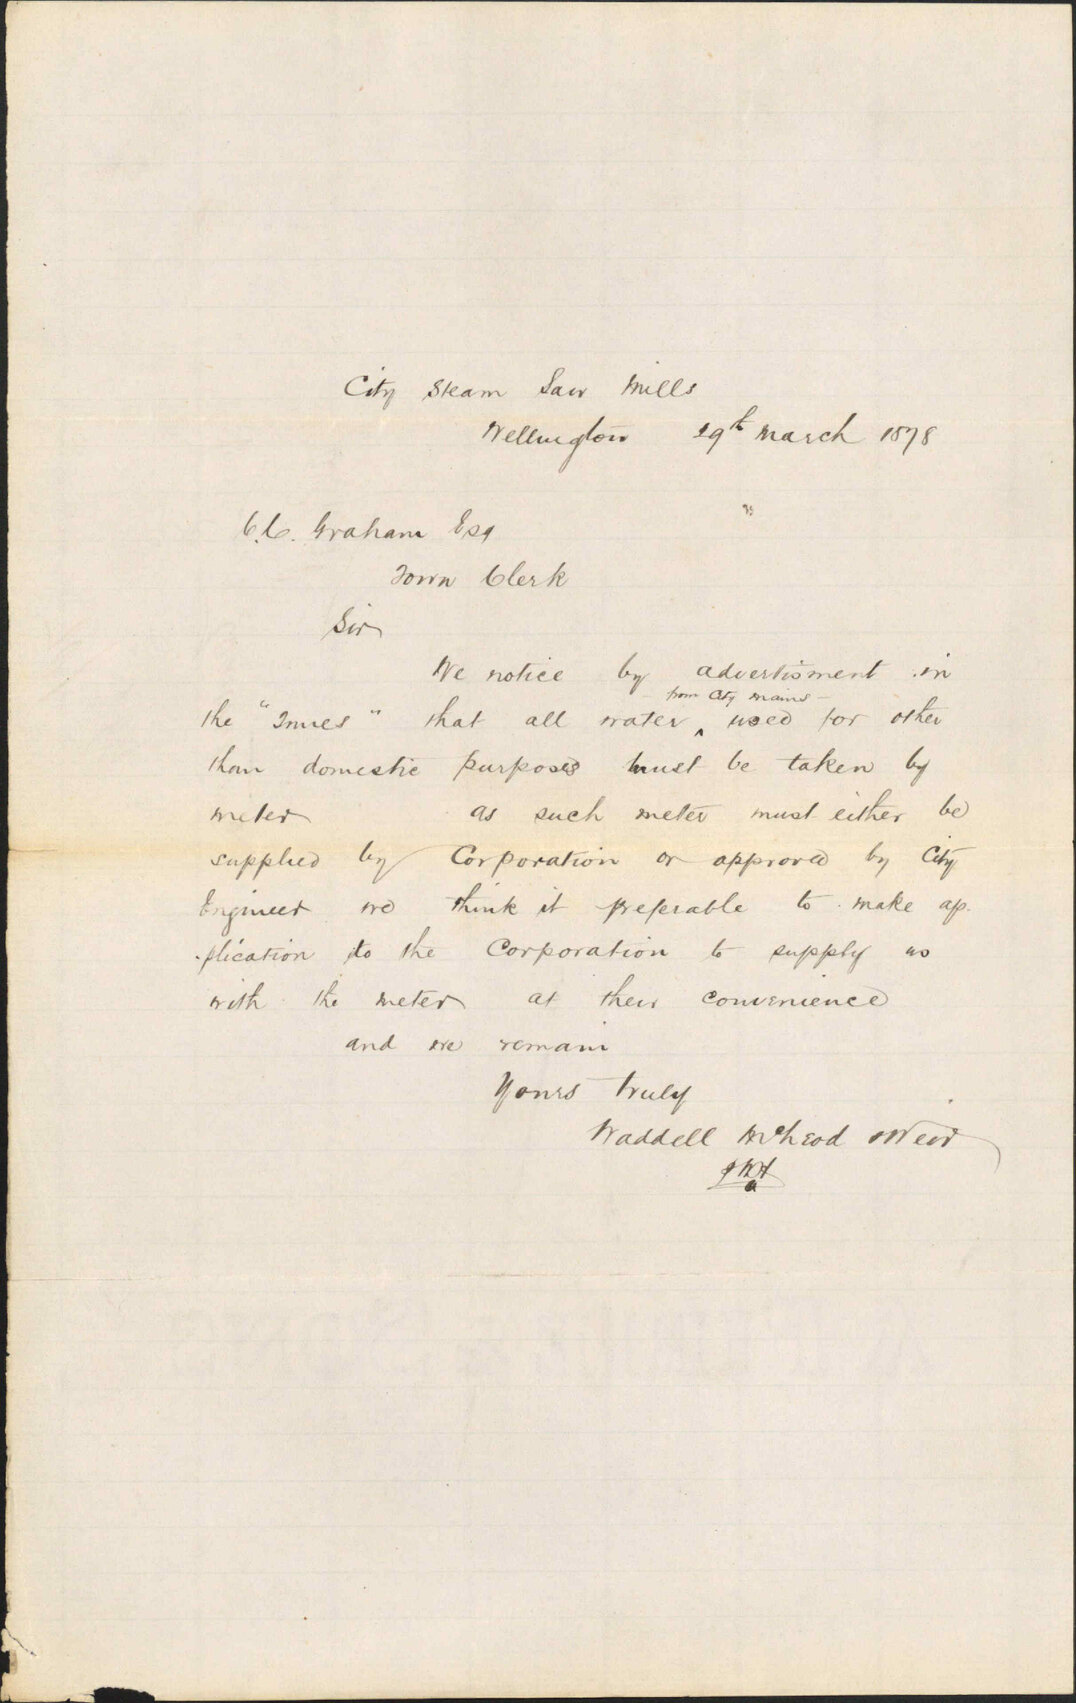 City Steam Saw Mills
Wellington 29th March 1878
C.C. Graham Esq
Town Clerk
Sir
We notice by advertisment in
from City mains
the "Times" that all water used for other
than domestic purposes must be taken by
meter as such meter must either be
supplied by Corporation or approved by City
Engineer we think it preferable to make ap
plication to the Corporation to supply us
with the meter at their convenience
and we remain
Yours truly
Waddell McLeod & Weir